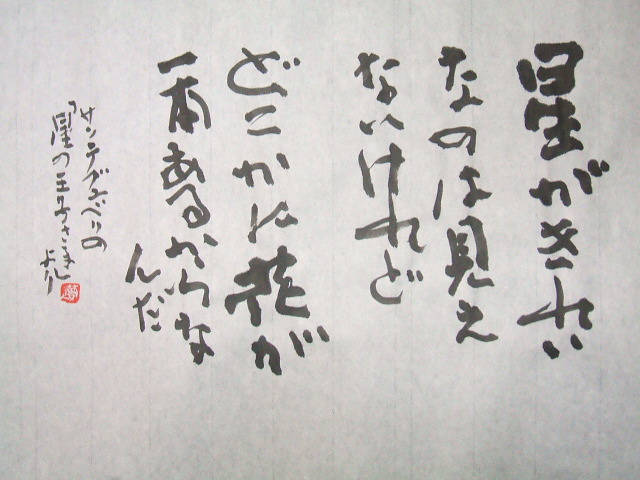 星がきれい
なのは見え
ないけれど
どこかに花が
一本あるからな
んだ
サンテグジュペリの
「星の王子さま」
より
夢